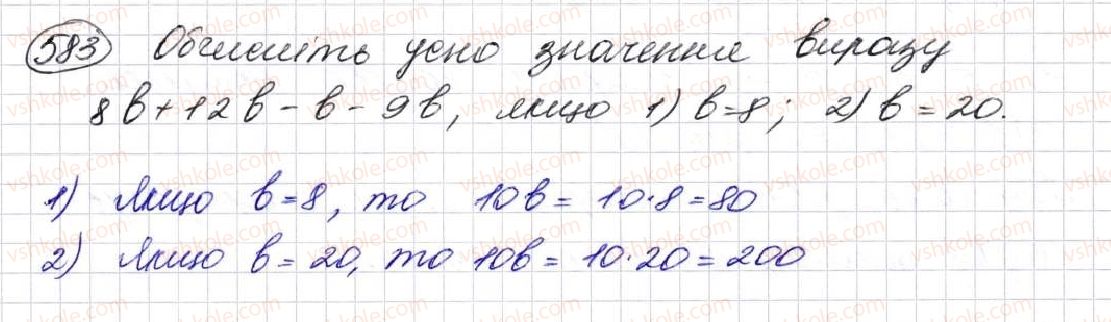 583 Обчисліть усно значення виразу
8в+12в-в-9в, якщо 1) в=8; 2) в=20.
1) Якщо в=8, то 10в= 10·8=80
2) Якщо в=20, то 10в= 10·20=200